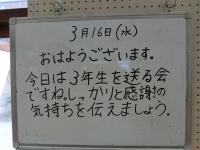 3月16日(水)
おはようございます。
今日は3年生を送る会
ですね。しっかりと感謝の
気持ちを伝えましょう。